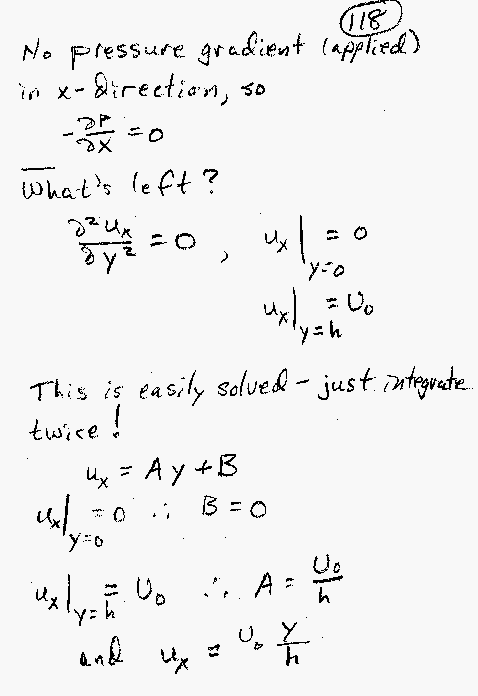 118
No pressure gradient (applied)
in x-direction, so
-∂P/∂x = 0
What's left?
∂²uₓ/∂y² = 0 , uₓ|y=0 = 0
uₓ|y=h = U₀
This is easily solved - just integrate
twice!
uₓ = Ay + B
uₓ|y=0 = 0 ∴ B = 0
uₓ|y=h = U₀ ∴ A = U₀/h
and uₓ = U₀ y/h